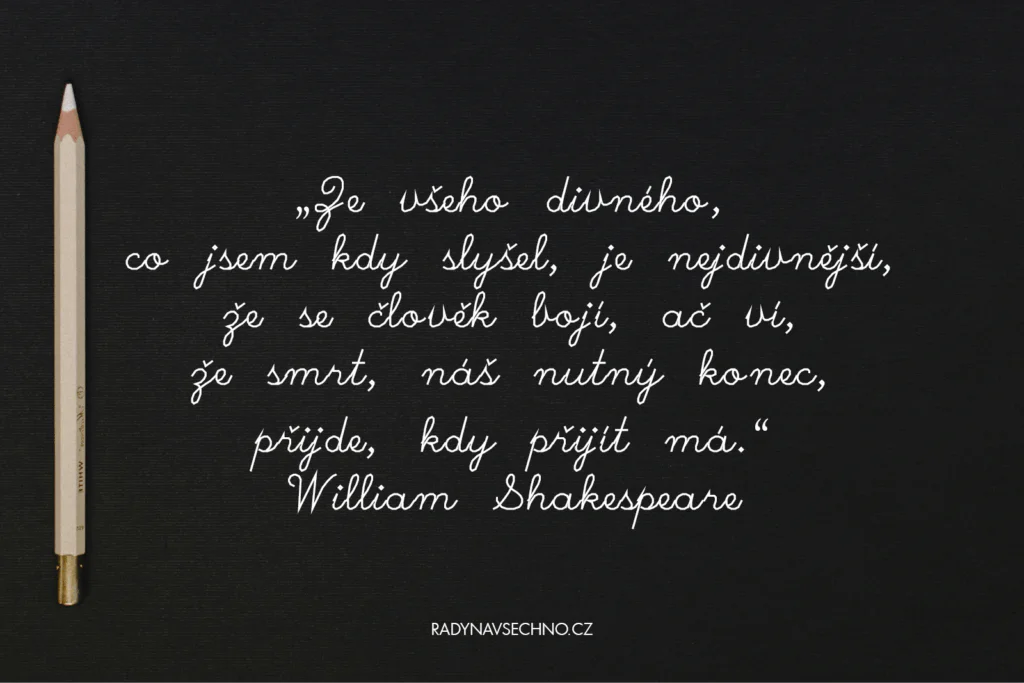 „Ze všeho divného,
co jsem kdy slyšel, je nejdivnější,
že se člověk bojí, ač ví,
že smrt, náš nutný konec,
přijde, kdy přijít má.“
William Shakespeare
RADYNAVSECHNO.CZ
WHITE